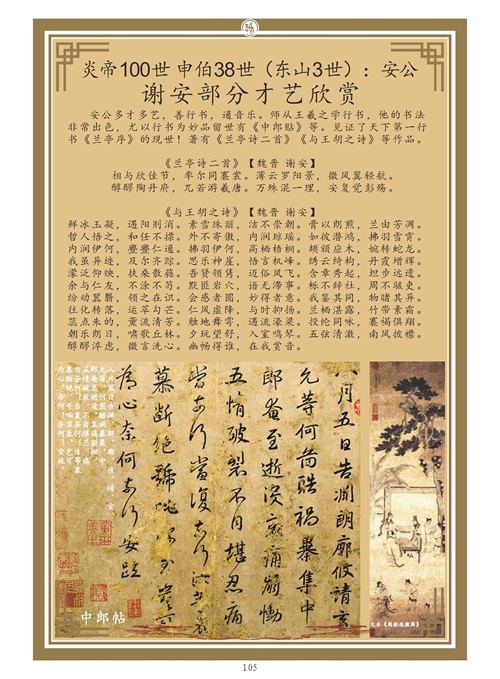 炎帝100世 申伯38世（东山3世）：安公
谢安部分才艺欣赏
安公多才多艺，善行书，通音乐。师从王羲之学行书，他的书法
非常出色，尤以行书为妙品留世有《中郎贴》等。见证了天下第一行
书《兰亭序》的现世！著有《兰亭诗二首》《与王胡之诗》等作品。
《兰亭诗二首》【魏晋 谢安】
相与欣佳节，率尔同褰裳。薄云罗阳景，微风翼轻航。
醇醪陶丹府，兀若游羲唐。万殊混一理，安复觉彭殇。
《与王胡之诗》【魏晋 谢安】
鲜冰玉凝，遇阳则消。素雪珠丽，洁不崇朝。膏以朗煎，兰由芳凋。
哲人悟之，和任不摽。外不寄傲，内润琼瑶。如彼潜鸿，拂羽雪霄。
内润伊何，亹亹仁通。拂羽伊何，高栖梧桐。颉颃应木，婉转蛇龙。
我虽异迹，及尔齐踪。思乐神崖，悟言机峰。绣云绮构，丹霞增辉。
濛汜仰映，扶桑散蕤。吾贤领隽，迈俗凤飞。含章秀起，坦步远遗。
余与仁友，不涂不笱。默匪岩穴，语无滞事。栎不辞社，周不骇吏。
纷动嚣翳，领之在识。会感者圆，妙得者意。我鉴其同，物睹其异。
往化转落，运萃勾芒。仁风虚降，与时抑扬。兰栖湛露，竹带素霜。
蕊点朱的，薰流清芳。触地舞雩，遇流濠梁。投纶同咏，褰褐俱翔。
朝乐朗日，啸歌丘林。夕玩望舒，入室鸣琴。五弦清激，南风披襟。
醇醪淬虑，微言洗心。幽畅得谁，在我赏音。
八月五日告渊朗廓攸靖玄
允等何图酷祸暴集中
郎奄至逝没哀痛崩恸
五情破裂不自堪忍痛
当奈何当复奈何汝等哀
慕断绝号咷深至岂可
为心奈何奈何安疏
中郎帖
105